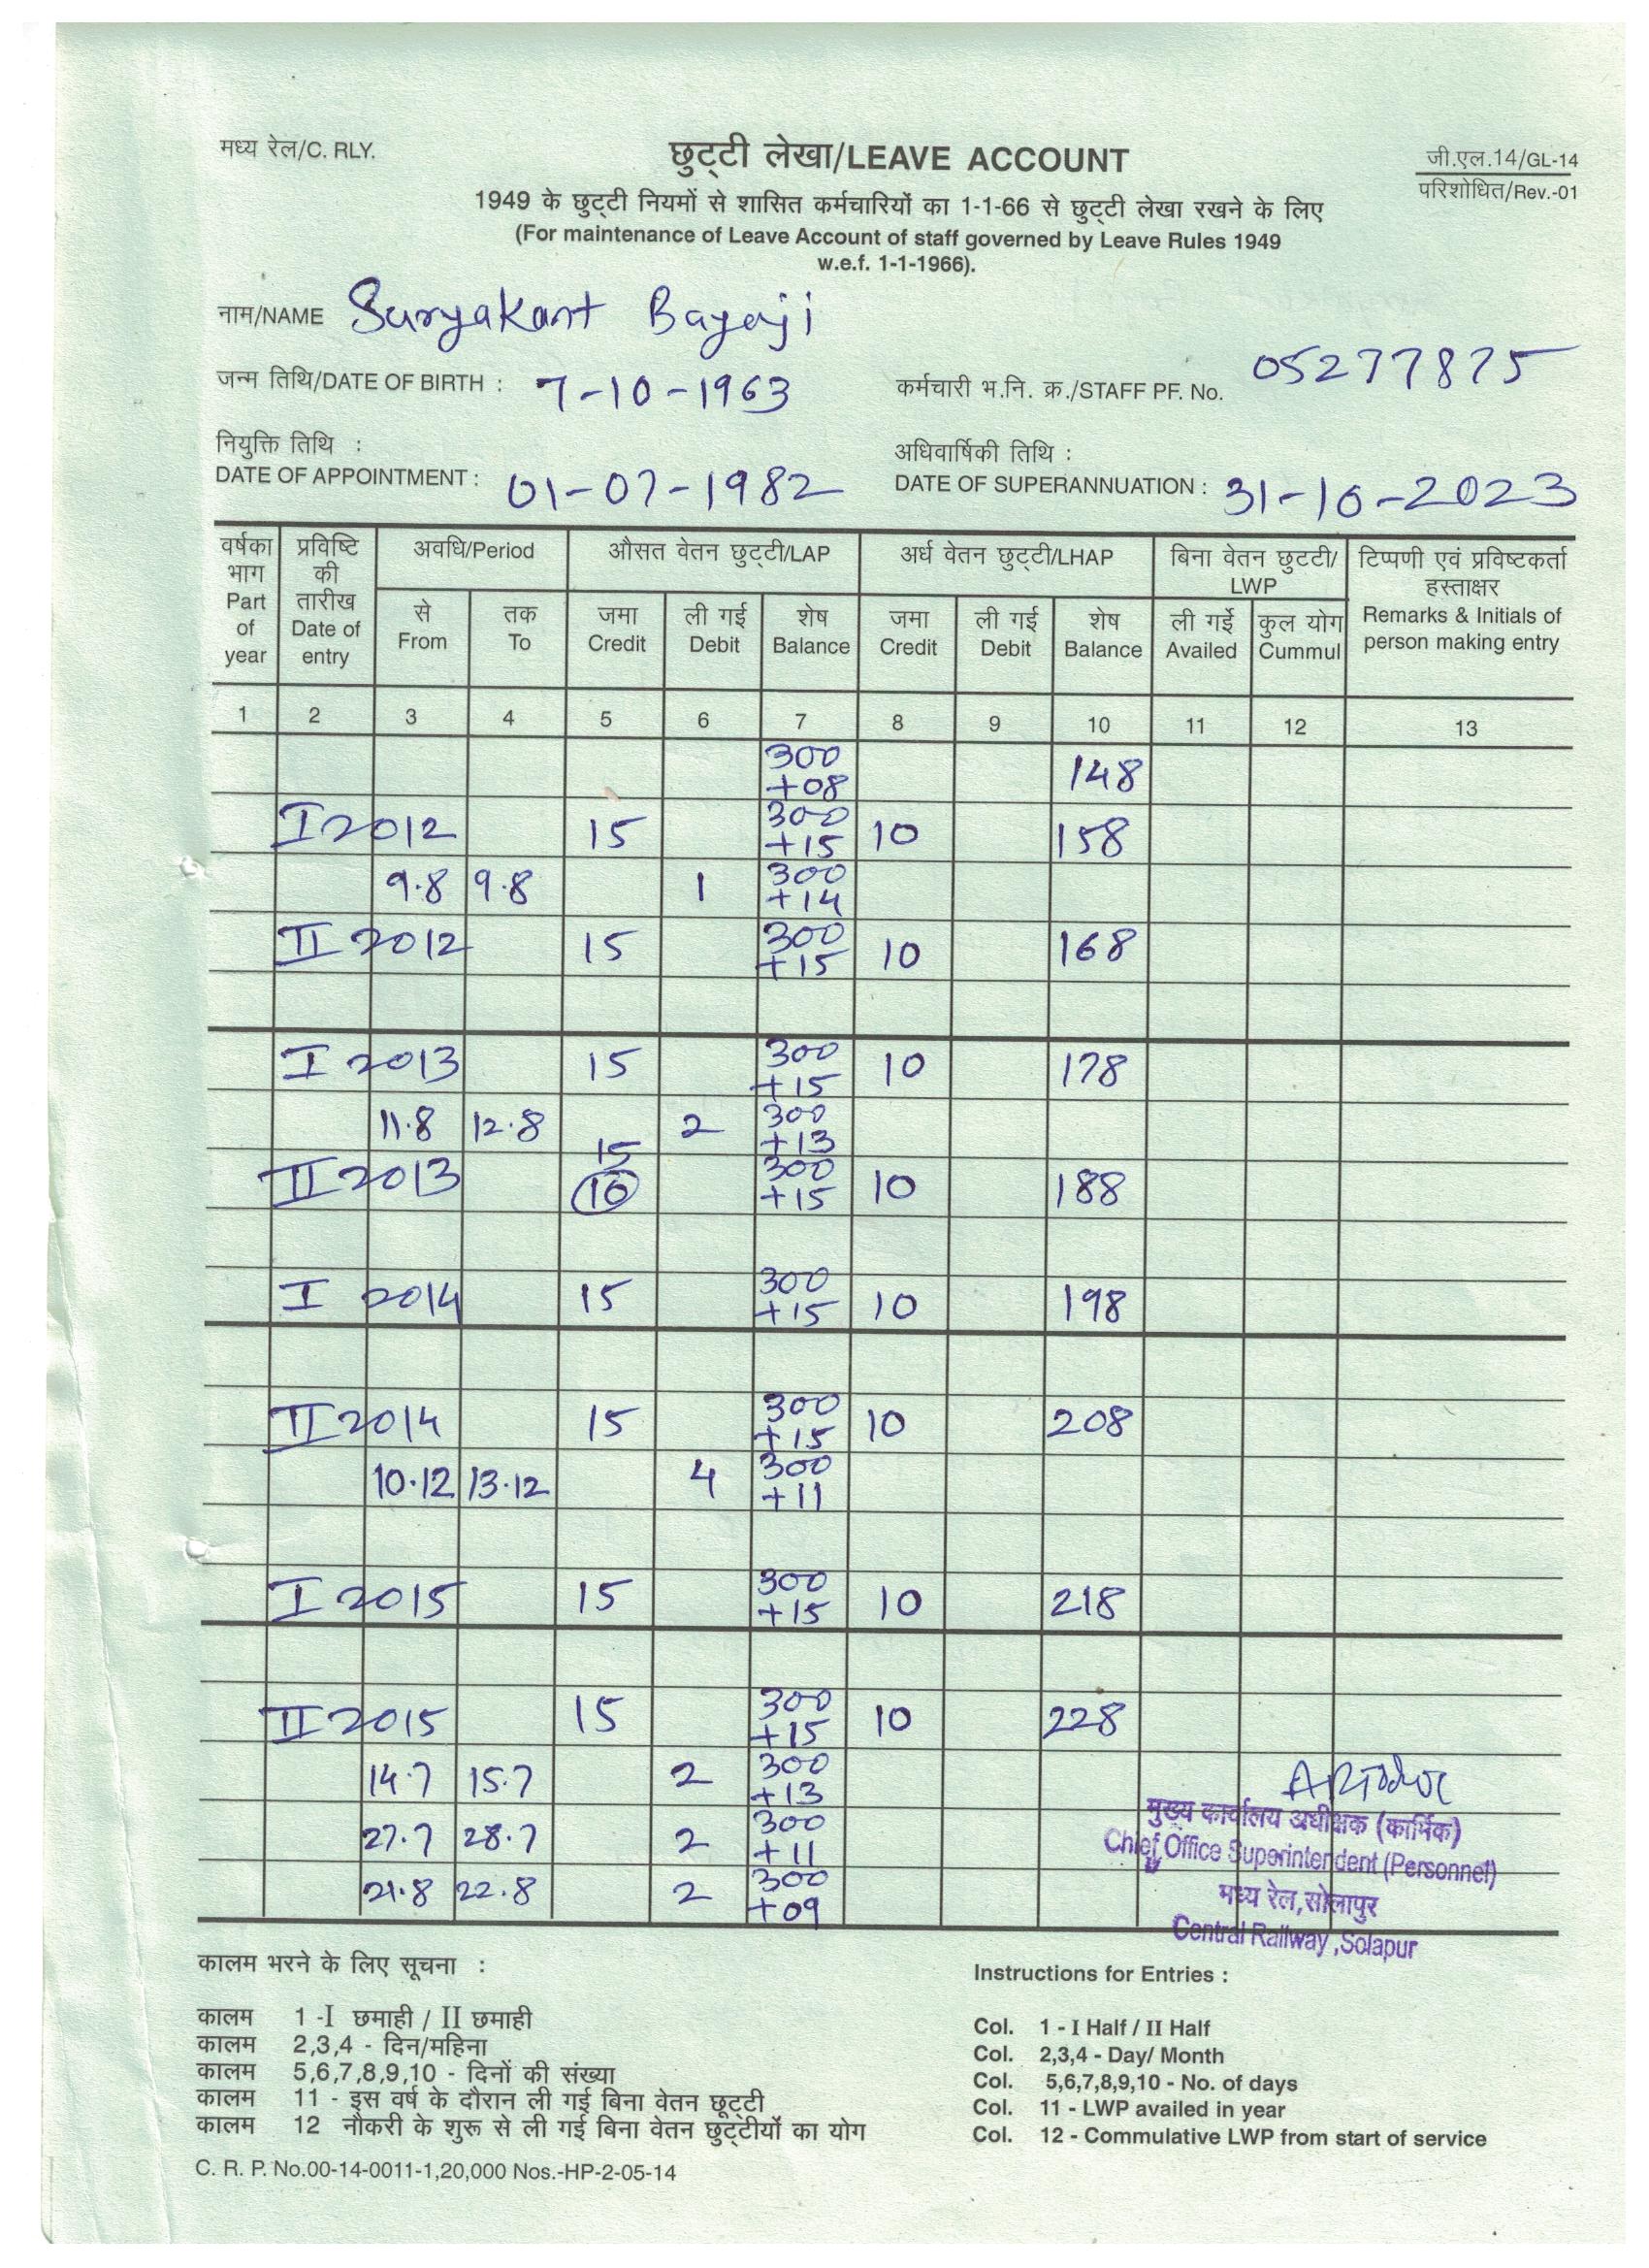 मध्य रेल/C. RLY.
छुट्टी लेखा/LEAVE ACCOUNT
जी.एल.14/GL-14
परिशोधित/Rev.-01
1949 के छुट्टी नियमों से शासित कर्मचारियों का 1-1-66 से छुट्टी लेखा रखने के लिए
(For maintenance of Leave Account of staff governed by Leave Rules 1949
w.e.f. 1-1-1966).
नाम/NAME Suryakant Bayaji
जन्म तिथि/DATE OF BIRTH : 7-10-1963 कर्मचारी भ.नि. क्र./STAFF PF. No. 05277875
नियुक्ति तिथि : अधिवार्षिकी तिथि :
DATE OF APPOINTMENT : 01-07-1982 DATE OF SUPERANNUATION : 31-10-2023
वर्षका भाग Part of year प्रविष्टि की तारीख Date of entry अवधि/Period औसत वेतन छुट्टी/LAP अर्ध वेतन छुट्टी/LHAP बिना वेतन छुटटी/ LWP टिप्पणी एवं प्रविष्टकर्ता हस्ताक्षर Remarks & Initials of person making entry
से From तक To जमा Credit ली गई Debit शेष Balance जमा Credit ली गई Debit शेष Balance ली गईे Availed कुल योग Cummul
1 2 3 4 5 6 7 8 9 10 11 12 13
300 +08 148
I 2012 15 300 +15 10 158
9.8 9.8 1 300 +14
II 2012 15 300 +15 10 168
I 2013 15 300 +15 10 178
11.8 12.8 2 300 +13
II 2013 15 10 300 +15 10 188
I 2014 15 300 +15 10 198
II 2014 15 300 +15 10 208
10.12 13.12 4 300 +11
I 2015 15 300 +15 10 218
II 2015 15 300 +15 10 228
14.7 15.7 2 300 +13
27.7 28.7 2 300 +11
21.8 22.8 2 300 +09
मुख्य कार्यालय अधीक्षक (कार्मिक)
Chief Office Superintendent (Personnel)
मध्य रेल, सोलापुर
Central Railway, Solapur
कालम भरने के लिए सूचना :
कालम 1 -I छमाही / II छमाही
कालम 2,3,4 - दिन/महिना
कालम 5,6,7,8,9,10 - दिनों की संख्या
कालम 11 - इस वर्ष के दौरान ली गई बिना वेतन छूट्टी
कालम 12 नौकरी के शुरू से ली गई बिना वेतन छुट्टीयों का योग
Instructions for Entries :
Col. 1 - I Half / II Half
Col. 2,3,4 - Day/ Month
Col. 5,6,7,8,9,10 - No. of days
Col. 11 - LWP availed in year
Col. 12 - Commulative LWP from start of service
C. R. P. No.00-14-0011-1,20,000 Nos.-HP-2-05-14